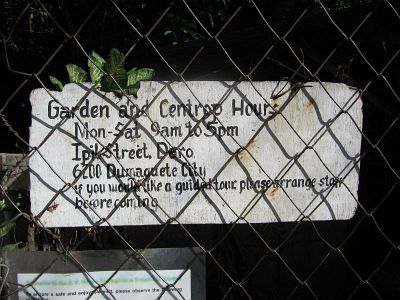 Garden and Centrop Hours:
Mon-Sat 9am to 5pm
Ipil Street, Daro
6200 Dumaguete City
if you would like a guided tour, please arrange staff
before coming
a safe and enjoy please observe the